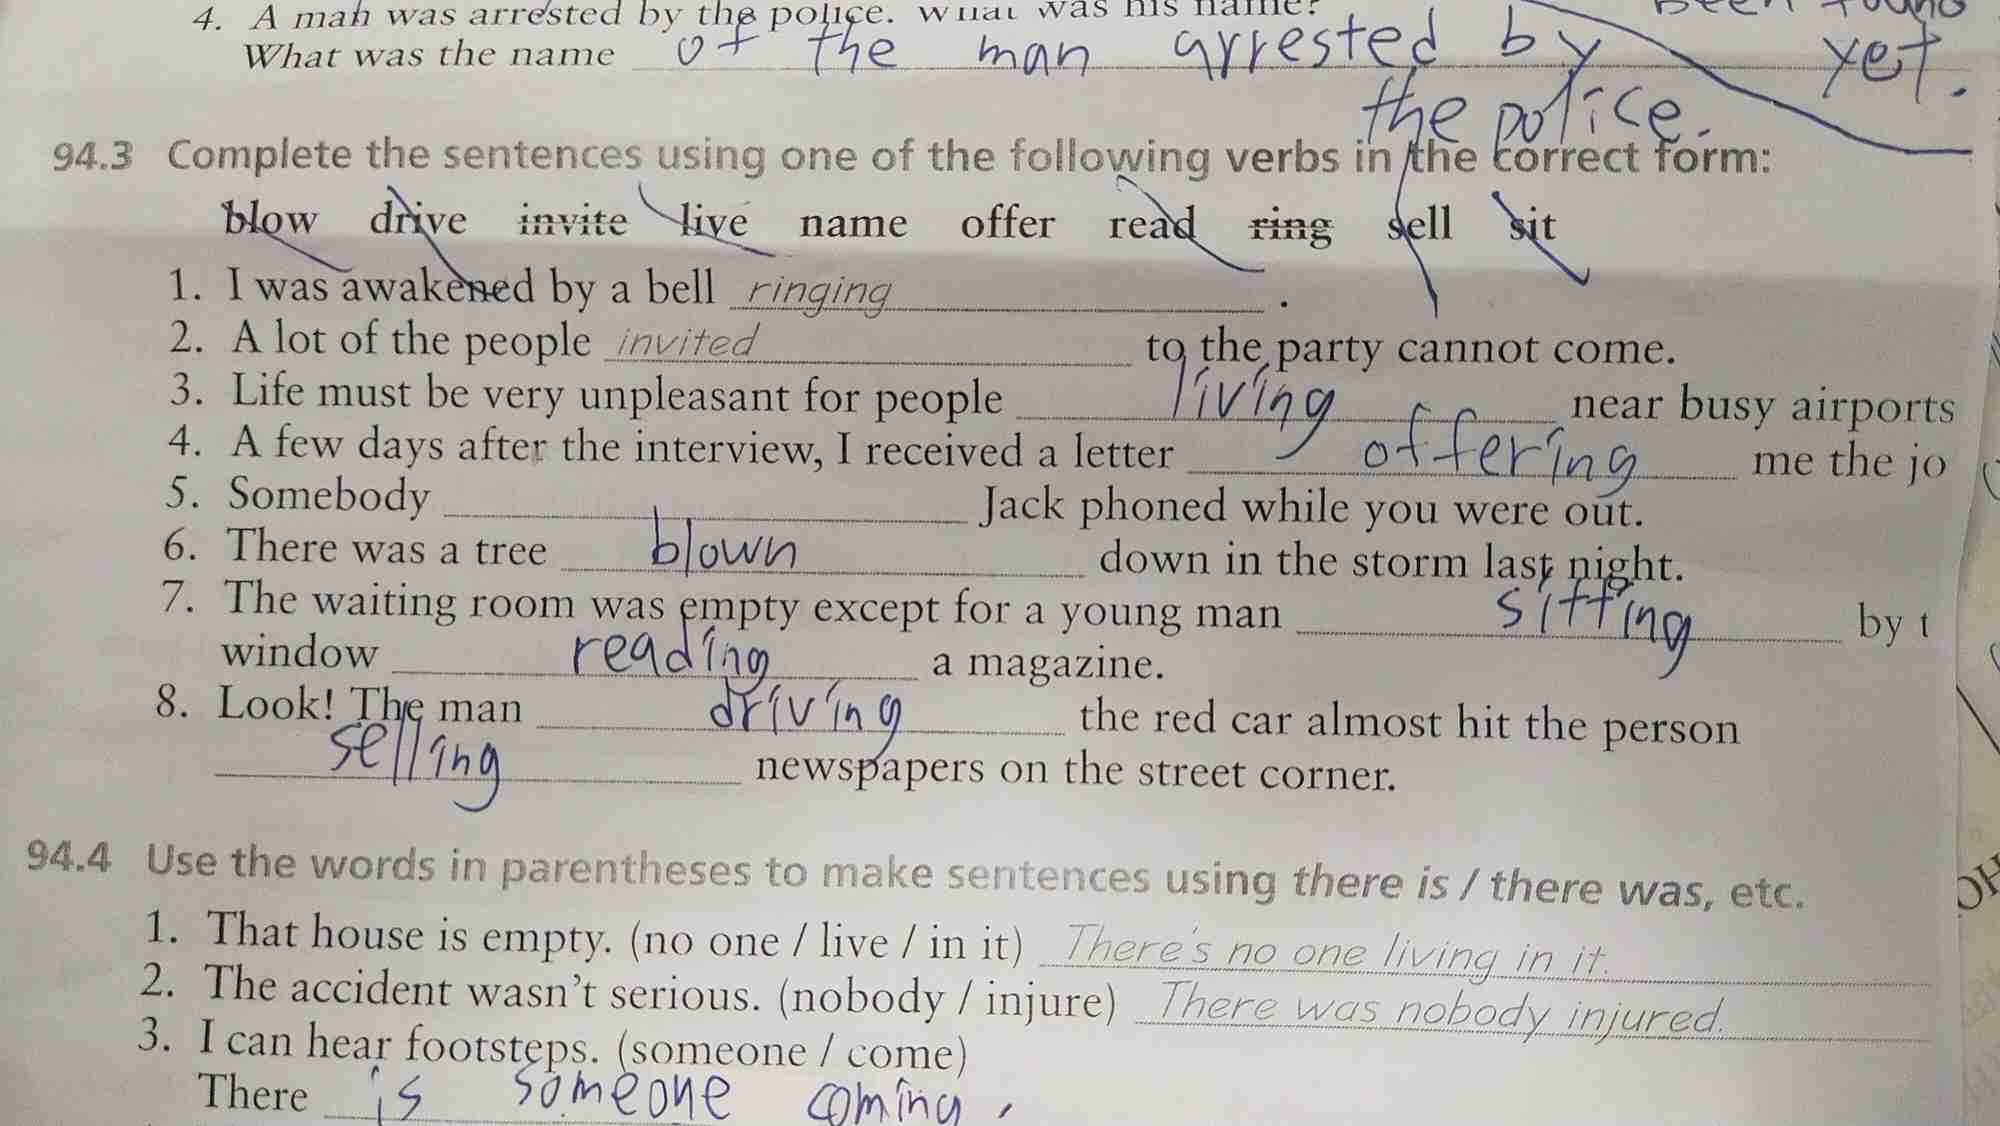 4. A man was arrested by the police. What was his name?
What was the name of the man arrested by
the police.
yet.
94.3 Complete the sentences using one of the following verbs in the correct form:
blow drive invite live name offer read ring sell sit
1. I was awakened by a bell ringing .
2. A lot of the people invited to the party cannot come.
3. Life must be very unpleasant for people living near busy airports
4. A few days after the interview, I received a letter offering me the jo
5. Somebody Jack phoned while you were out.
6. There was a tree blown down in the storm last night.
7. The waiting room was empty except for a young man sitting by t
window reading a magazine.
8. Look! The man driving the red car almost hit the person
selling newspapers on the street corner.
94.4 Use the words in parentheses to make sentences using there is / there was, etc.
1. That house is empty. (no one / live / in it) There's no one living in it.
2. The accident wasn't serious. (nobody / injure) There was nobody injured.
3. I can hear footsteps. (someone / come)
There is someone coming.